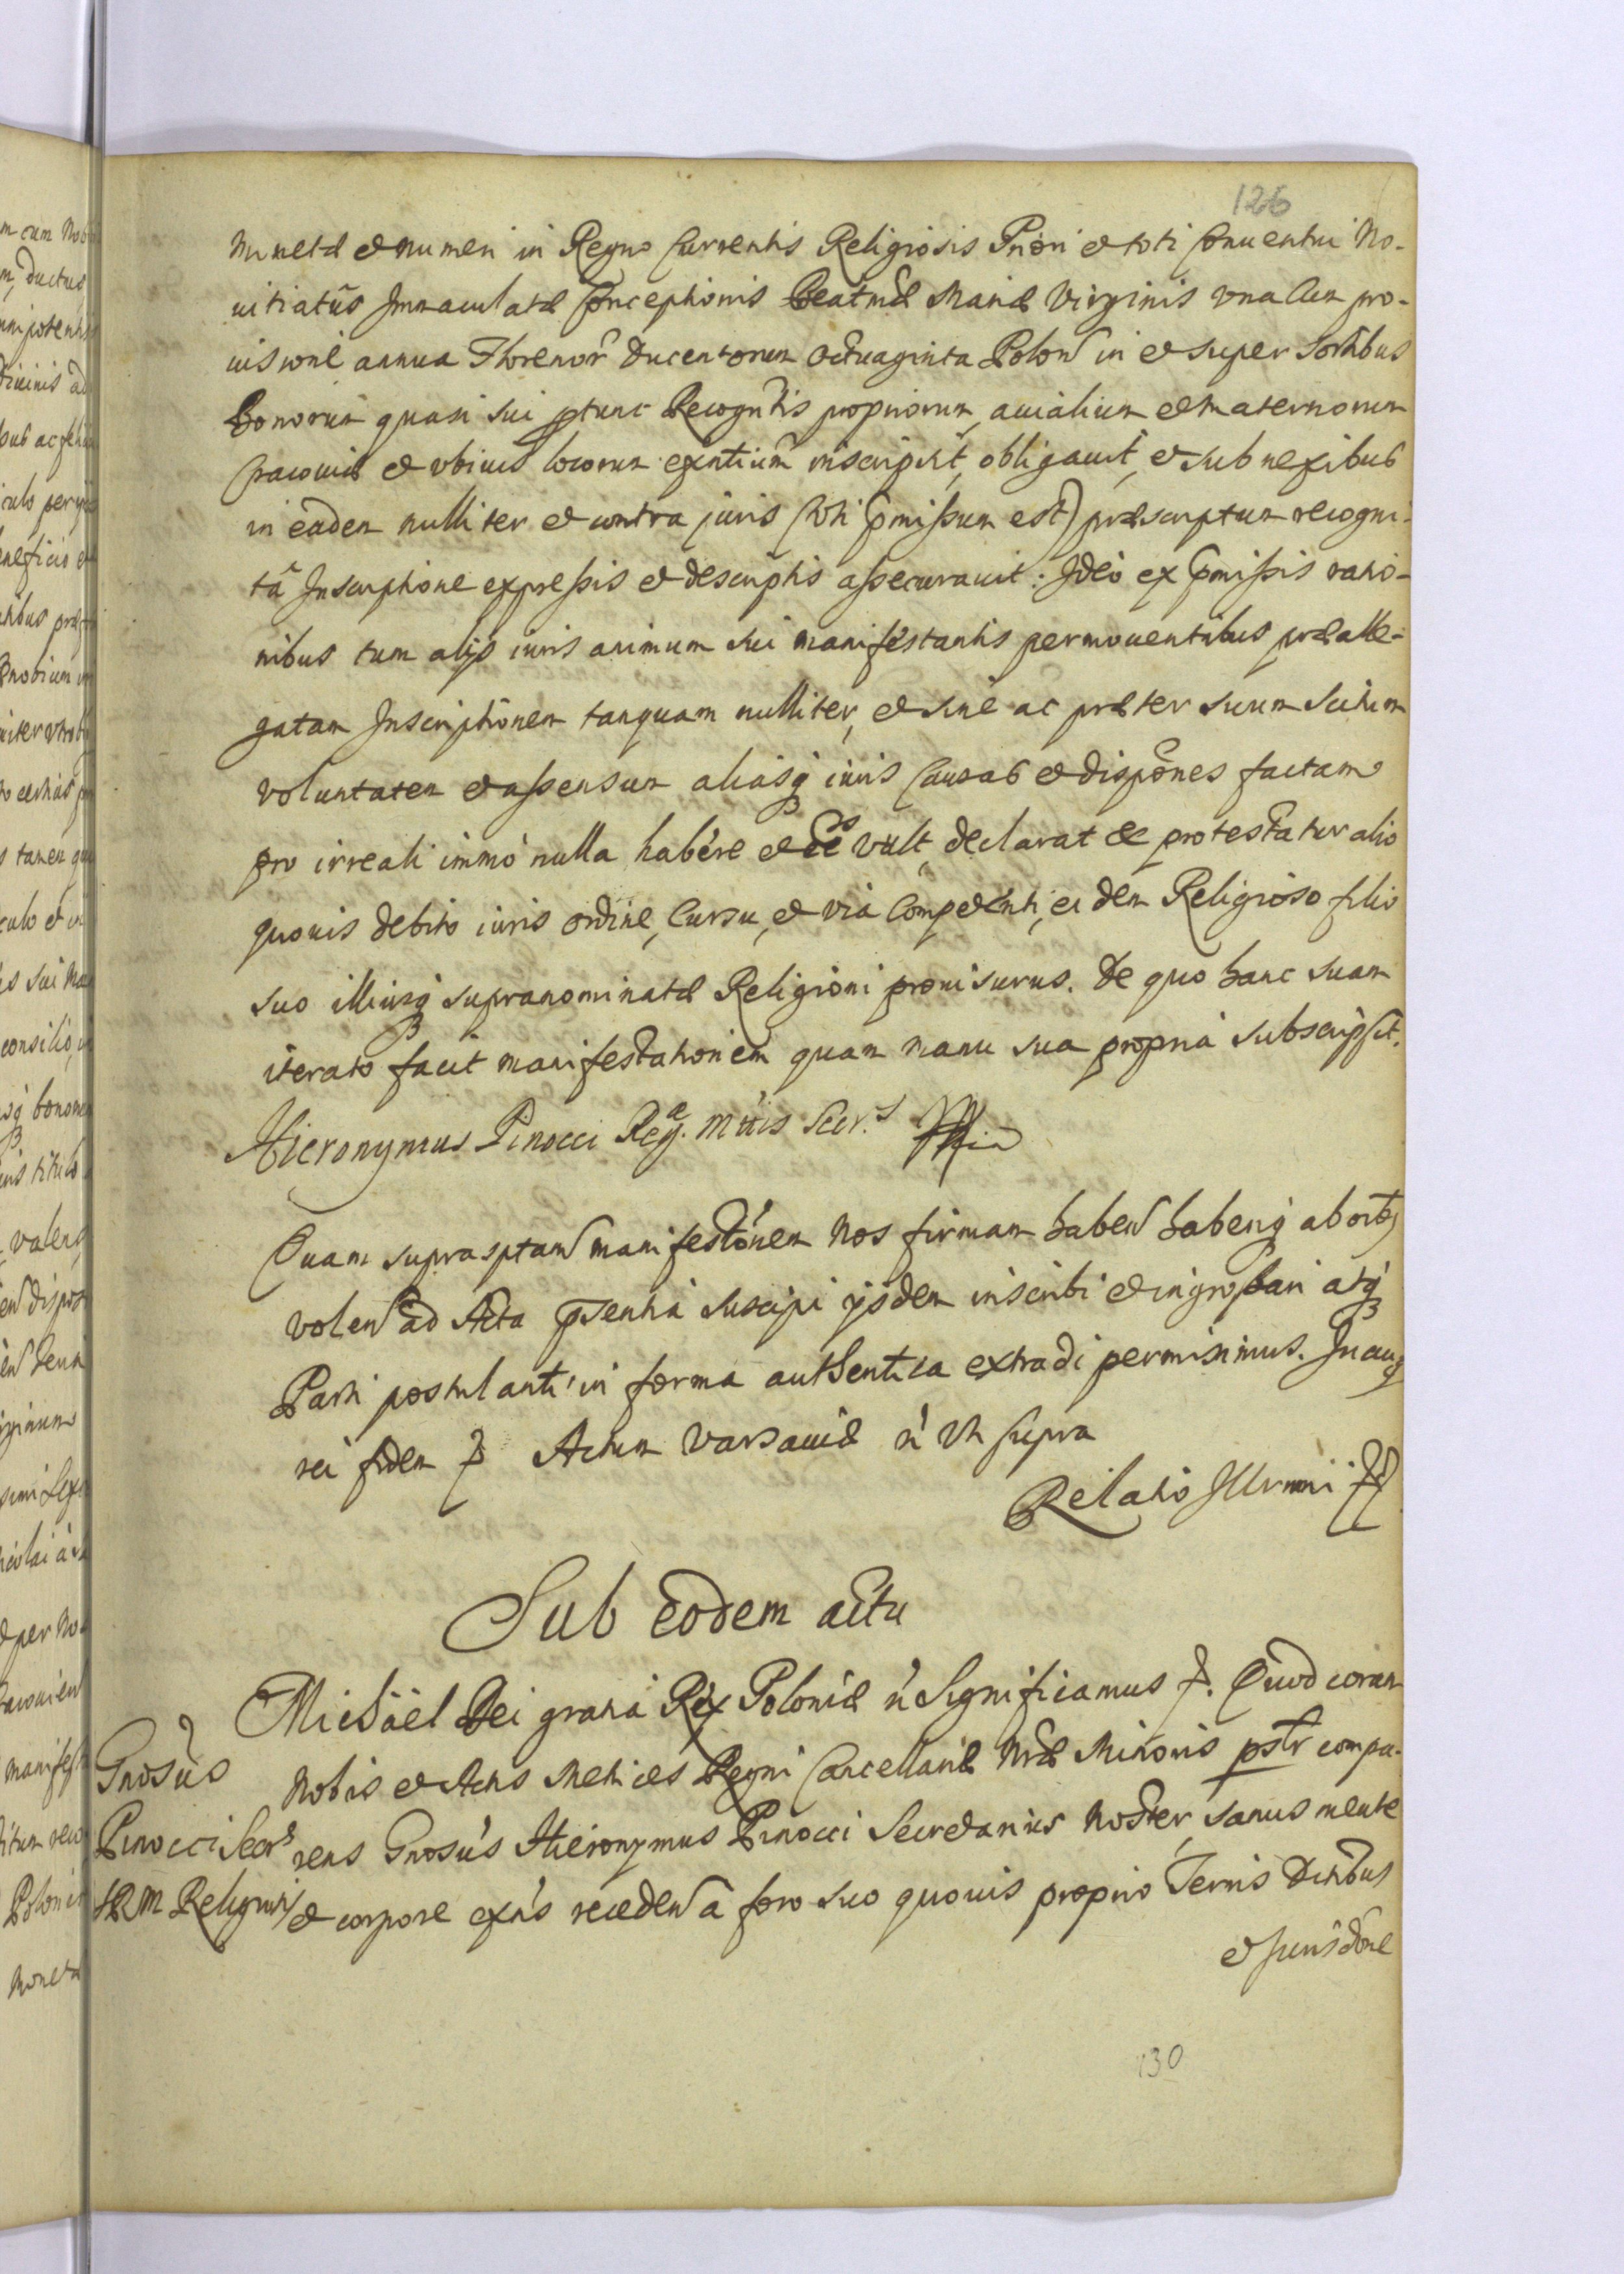 126
Monetæ et numeri in Regno Currentis Religiosis Priori et toti Conuentui No-
uitiatûs Immaculatæ Conceptionis Beatmæ Mariæ Virginis vna Cum pro-
uisione annua Florenor Ducentorum Octuaginta Polon in et super Sortibus
Bonorum quasi sui ptunc Recognitis propriorum, auialium et maternorum
Cracouiæ et vbiuis locorum exntium inscripsit, obligauit, et sub nexibus
in eadem nulliter et contra juris (vti pmissum est) præscriptum recogni-
tâ Inscriptione expressis et descriptis assecurauit: Ideò ex pmissis ratio-
nibus tum alijs iuris animum sui manifestantis permouentibus prealle-
gatam Inscriptionem tanquam nulliter, et sine ac præter suum Scitum
voluntatem et assensum aliasq iuris Causas et dispones factam
pro irreali immò nulla habere et vult, declarat et protestatur alio
quouis debito iuris ordine, Cursu, et viâ Competenti, eidem Religioso filio
suo illiusq supranominatæ Religioni prouisurus. De quo hanc suam
iterato facit manifestationem quam manu sua propriâ subscripsit.
Hieronymus Pinocci Reg. Mttis Secr.s
Quam suprasptam manifestonem Nos firmam haben haberiq ab oibq
volen ad Acta psentia suscipi ijsdem inscribi et ingrossari atq
Parti postulanti in forma authentica extradi permisimus. In cuiq
rei fidem Actum Varsauiæ vt supra
Relatio Illrmi
Sub eodem actu
Michäel Dei gratia Rex Poloniæ Significamus Quod coram
Gnosus Nobis et Actis Metrices Regni Cancellariæ Nræ Minoris pstr compa-
Pinocci Secrs rens Gnosus Hieronymus Pinocci Secretarius Noster, sanus mente
et corpore exns receden à foro suo quouis proprio Terris Dtibus
et Jurisdone
130